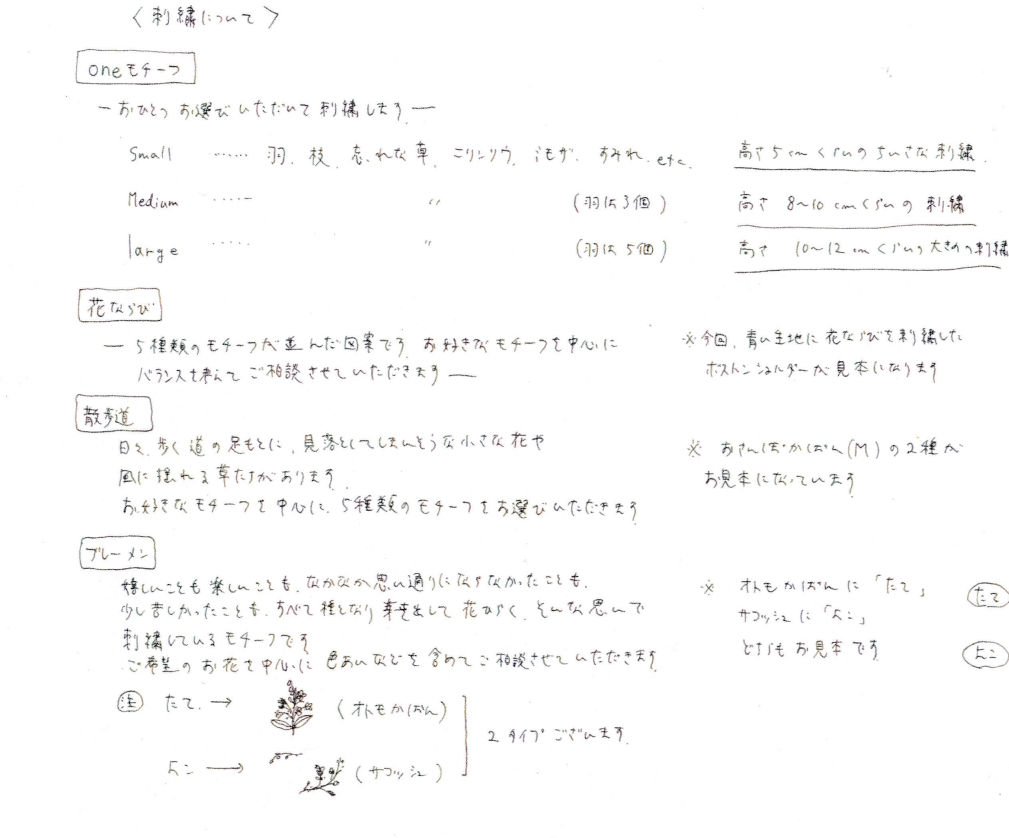 〈 刺繍について 〉
oneモチーフ
― おひとつ お選びいただいて 刺繍します ―
Small …… 羽、枝、忘れな草、こリンゴウ、ミモザ、すみれ、etc. 高さ 5cmくらいの ちいさな刺繍
Medium …… 〃 (羽は3個) 高さ 8~10cmくらいの 刺繍
large …… 〃 (羽は5個) 高さ 10~12cmくらいの大きめの刺繍
花ならび
― 5種類のモチーフが並んだ図案です お好きなモチーフを中心に ※今回、青い生地に 花ならびを刺繍した
バランスを考えて ご相談させていただきます ― ボストンショルダーが見本になります
散歩道
日々、歩く道の足もとに、見落としてしまいそうな小さな花や ※ おさんぽかばん(M)の2種が
風に揺れる草たちがあります お見本になっています
お好きなモチーフを中心に、5種類のモチーフをお選びいただきます
ブレーメン
嬉しいことも楽しいことも、なかなか思い通りにならなかったことも、 ※ オトモかばんに「たて」 たて
少し苦しかったことも、すべて種となり 芽生として 花ひらく、そんな思いで サコッシュに「よこ」
刺繍しているモチーフです どちらもお見本です よこ
ご希望のお花を中心に 色あいなどを含めてご相談させていただきます
注 たて → (オトモかばん)
2タイプございます
よこ → (サコッシュ)